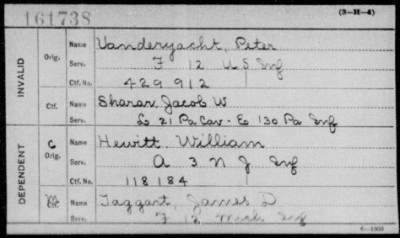 161738
(3-H-4)
INVALID
Orig.
Name Vanderyacht, Peter
Serv. F 12 U S Inf
Ctf. No. 429 912
Ctf.
Name Sharar Jacob W
Serv. L 21 Pa Cav - E 130 Pa Inf
DEPENDENT
C
Orig.
Name Hewitt William
Serv. A 3 N J Inf
Ctf. No. 118 184
Ctf.
Name Taggart, James D
Serv. F 12 Mich Inf